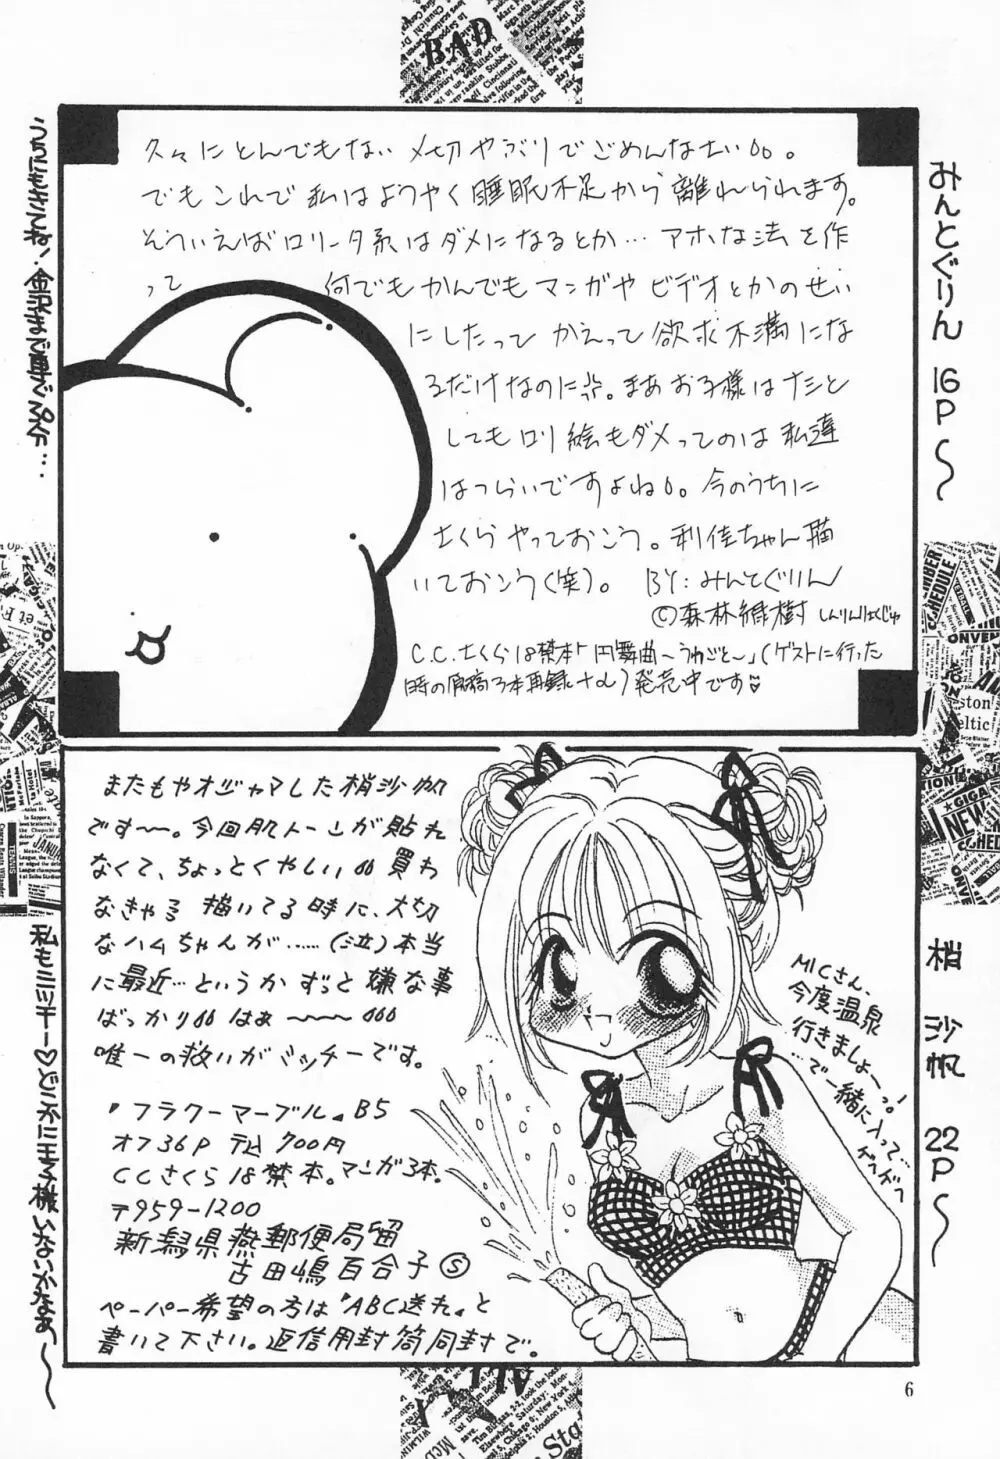 久々にとんでもない〆切やぶりでごめんなさい。
でもこれで私はようやく睡眠不足から離れられます。
そういえばロリータ系はダメになるとか…アホな法を作
って
何でもかんでもマンガやビデオとかのせい
にしたってかえって欲求不満にな
るだけなのに。まあお子様はナシと
してもロリ絵もダメってのは私達
はつらいですよね。今のうちに
さくらやっておこう。利佳ちゃん描
いておこう(笑)。 BY:みんとぐりん
©森林緑樹 しんりんりょくじゅ
C.C.さくら18禁本「円舞曲〜うわごと〜」(ゲストに行った
時の原稿3本再録+α)発売中です♡
みんとぐりん 16P〜
うちにもきてね!金沢まで車で30分…
またもやオジャマした梢沙帆
です〜〜。今回肌トーンが貼れ
なくて、ちょっとくやしい 買わ
なきゃ 描いてる時に、大切
なハムちゃんが……(泣)本当
に最近…というかずっと嫌な事
ばっかり はぁ〜〜〜
唯一の救いがミッチーです。
『フラワーマーブル』B5
オフ36P 〒込700円
CCさくら18禁本。マンガ3本。
〒959-1200
新潟県燕郵便局留
古田嶋百合子Ⓢ
ペーパー希望の方は『ABC送れ』と
書いて下さい。返信用封筒同封で。
MICさん、
今度温泉
行きましょーっ!
…で一緒に入って…
ゲヘゲヘ
梢 沙帆 22P〜
私もミッチー♡どこかに王子様いないかなぁ〜
BAD
6